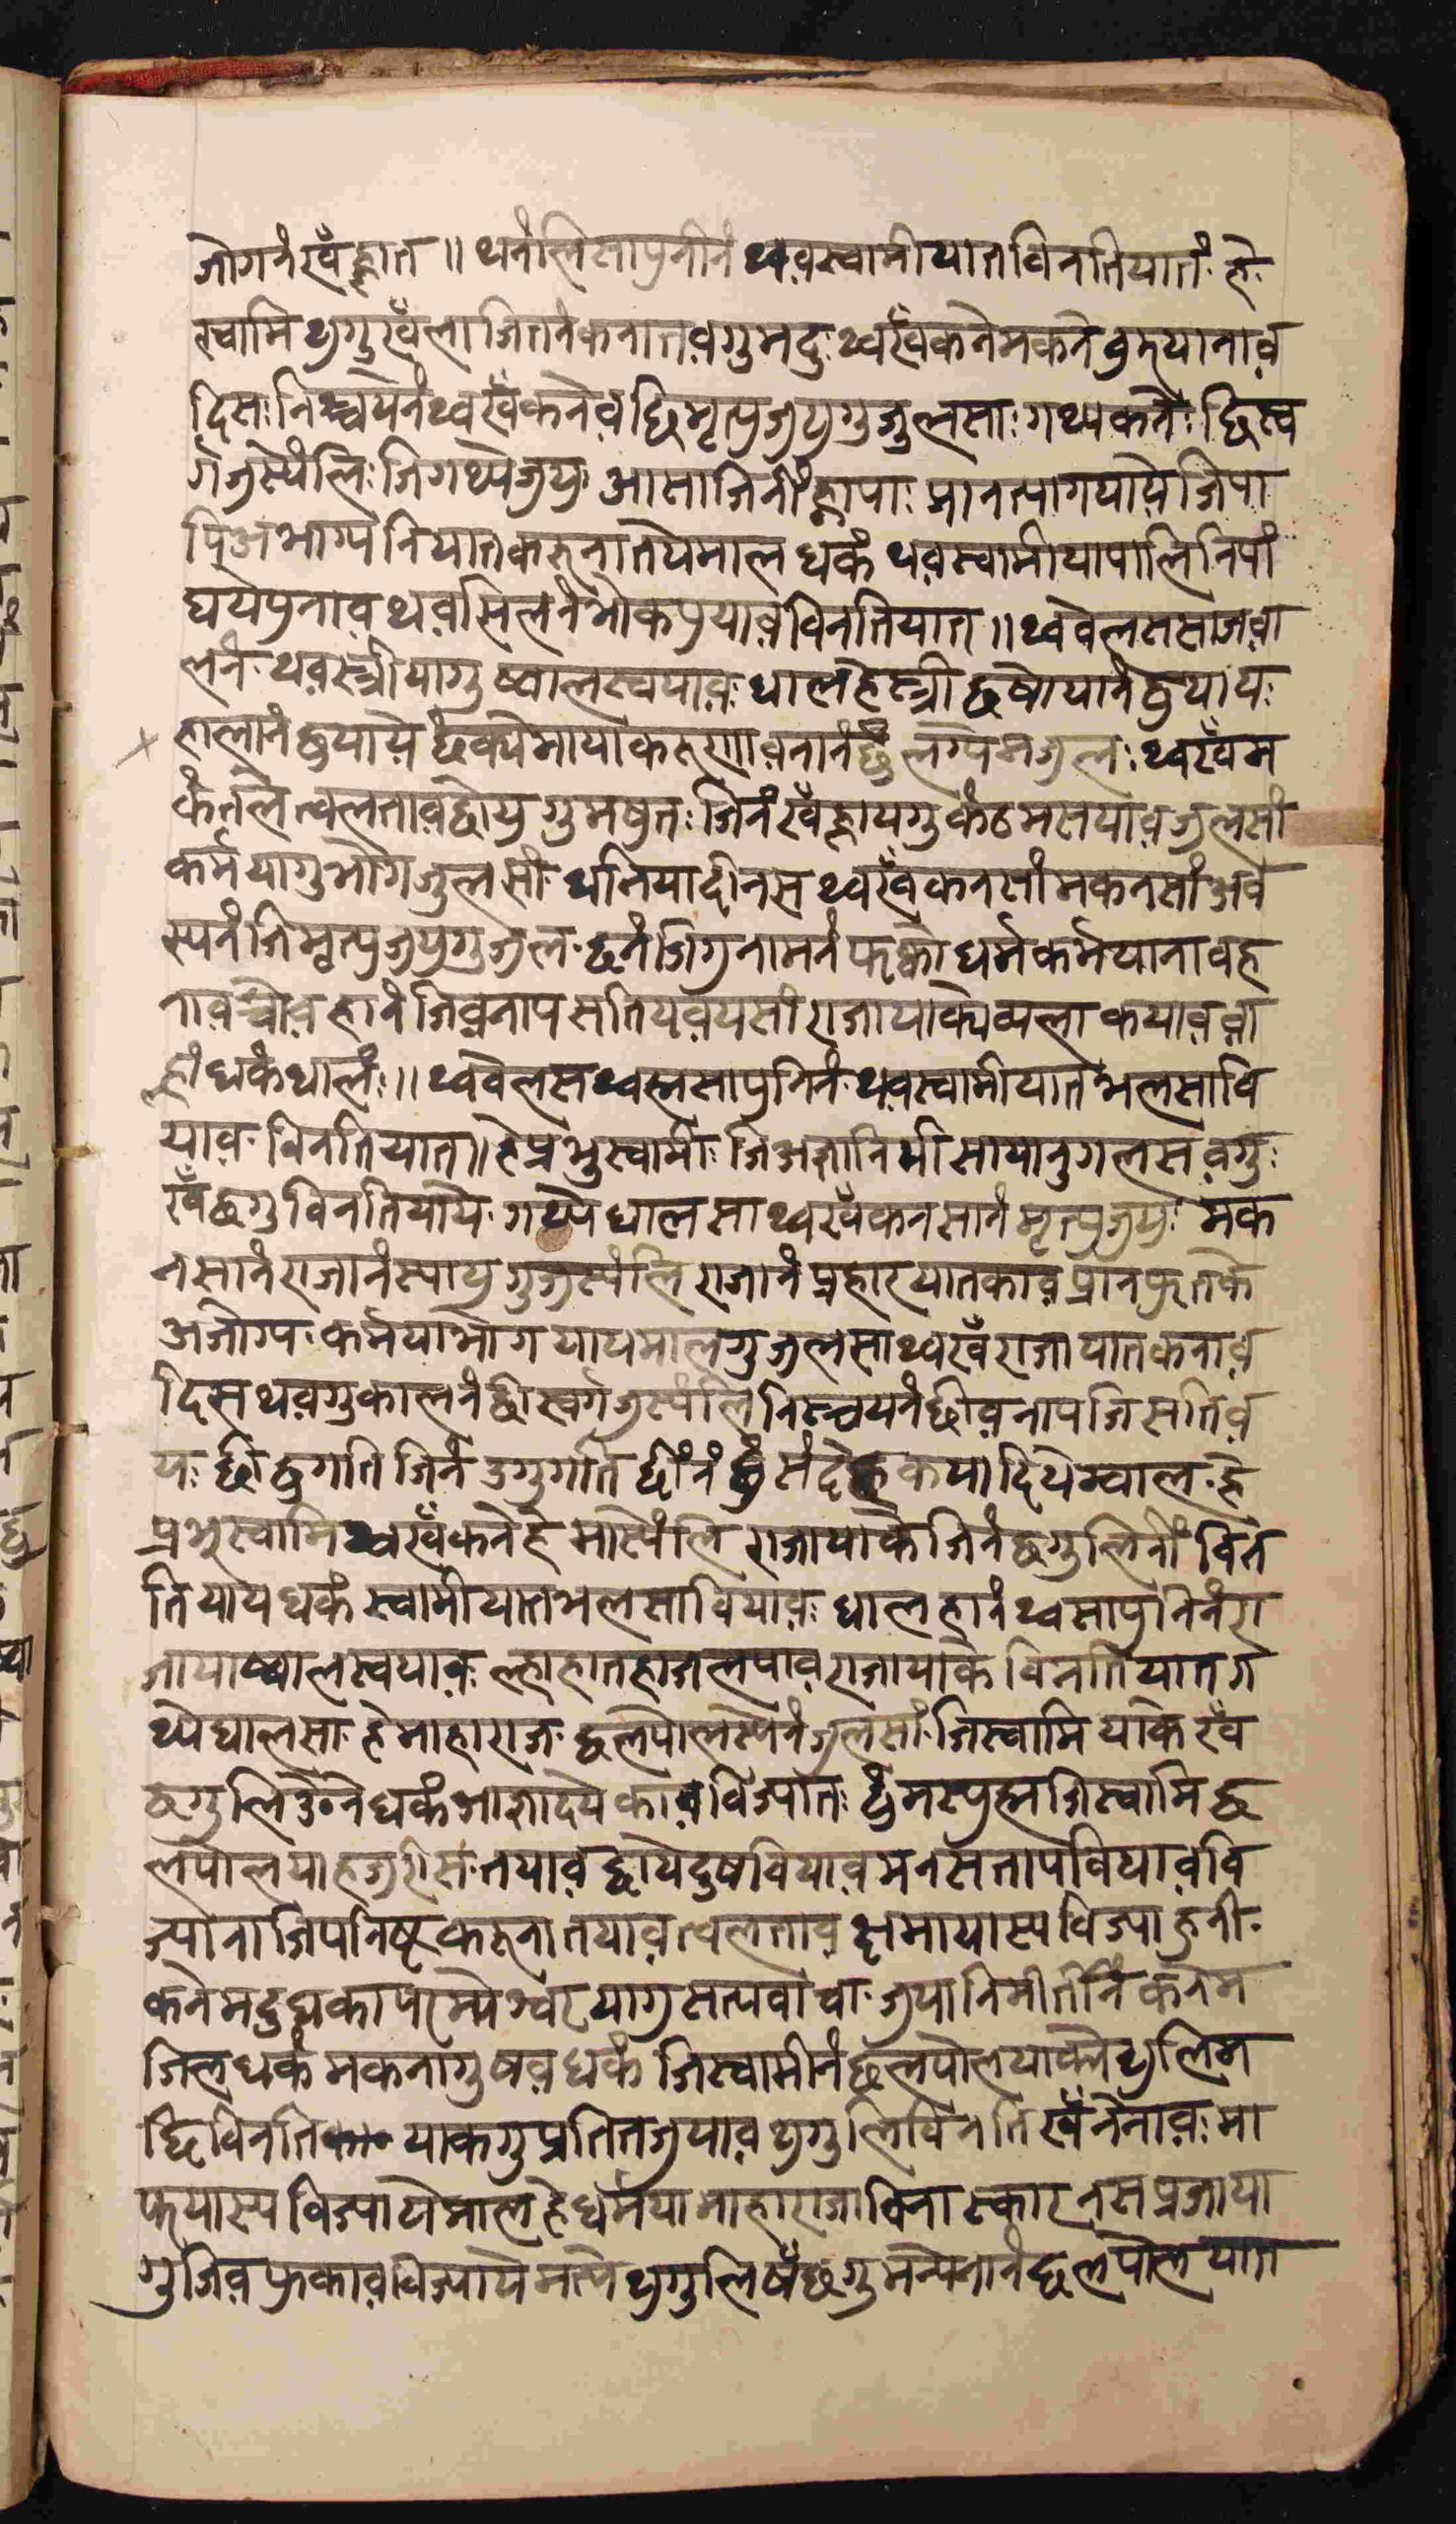 जोगनं खँ ह्लात ॥ थनंलि सापुनीनं थ्व स्वामीयात विनतियातं हे
स्वामि थुगु खँ ला जितनं कनातवगु मदु थ्व खँ कने मकने वुमयानाव
दिसः निश्चयनं थ्व खँ कनेव छि मृत्यु जुयुगु जुलसाः गथ्य कनेः छि स्व
र्ग जुस्येंलिः जि गथ्ये जुयुः आसा जिनीं ह्लापाः प्रानत्याग याये जि पा
पि अभाग्य नियात करुनातयेमाल धकं थव स्वामीया पालिनिपां
घयपुनाव थव सिलनं भोकपुयाव विनतियात ॥ थ्व वेलस साजवा
लनं थव स्त्रीयागु ष्वाल स्वयावः धाल हे स्त्री छ षोयानं छु याय
हालानं छु याये छंके मायाकरुणावनानं छुं लग्ये मजुलः थ्व खँ म
कंतले त्वलताव छोयु गु मषुतः जिनं खँ ह्लायगु कंठमसयाव जुलसां
कर्मयागु भोग जुलसां थनियादीनस थ्व खँ कनसां मकनसां अव
स्यनं जि मृत्यु जुयुगु जुल छनं जिगु नामनं फक्को धर्मकर्म यानाव ह
नाव च्वोव हानं जिवनाप सतियवयसां राजायाके व्यलाकयाव वा
ह्लां धकं धालं ॥ थ्व वेलस थ्वह्म सापुनिनं थव स्वामीयात भलसावि
याव विनतियात ॥ हे प्रभु स्वामी जि अज्ञानि मीसायानुगलस वगु
खँ छगु विनतियाये गथ्ये धालसा थ्व खँ कनसानं मृत्यु जुयु मक
नसानं राजानं स्यायुगु जुस्यंलि राजानं प्रहारयातकाव प्रान फुतके
अजोग्य कर्मया भोग यायमालगु जुलसा थ्व खँ राजायात कनाव
दिस थवगु कालनं छी स्वर्ग जुस्यंलि निस्चयनं छीवनाप जि सतिव
यः छि छुगति जिनं उगुगति छीनं छुं संदेह कयादियेम्वाल हे
प्रभुस्वामि थ्व खँ कनेहे माल्येंलि राजायाके जिनं छगुलिनीं विन
तियाय धकं स्वामीयात भलसावियावः धाल हानं थ्व सापुनिनं रा
जाया ष्वाल स्वयाव ल्हाहात हाजलपाव राजायाके विनतियात ग
थ्ये धालसा हे माहाराज छलपोलस्येनं जुलसां जिस्वामियाके खँ
छगुलि ङेने धकं आज्ञादयेकाव विज्यातः थुमस्युह्म जिस्वामि छ
लपोलया हजुरीस तयाव छाये दुषवियाव मनसंतापवियाव वि
ज्याना जिपनिष्ट करुनातयाव त्वलताव क्षमायास्य विज्याहुनी
कने मदुधका परम्येश्वरयागु सत्यवाचा जुयानिमीतिनं कनेम
जिल धकं मकनागु षव धकं जिस्वामीनं छलपोलयाके थुलिम
छि विनति याकगु प्रतित जुयाव थुगुलि विनति खँ नेनाव मा
फयास्य विज्यायेमाल हे धर्मया माहाराजा विना स्कारनस प्रजाया
गु जिव फुकाव विज्याये मत्ये थुगुलि षँ छगु मन्येनानं छलपोलयात